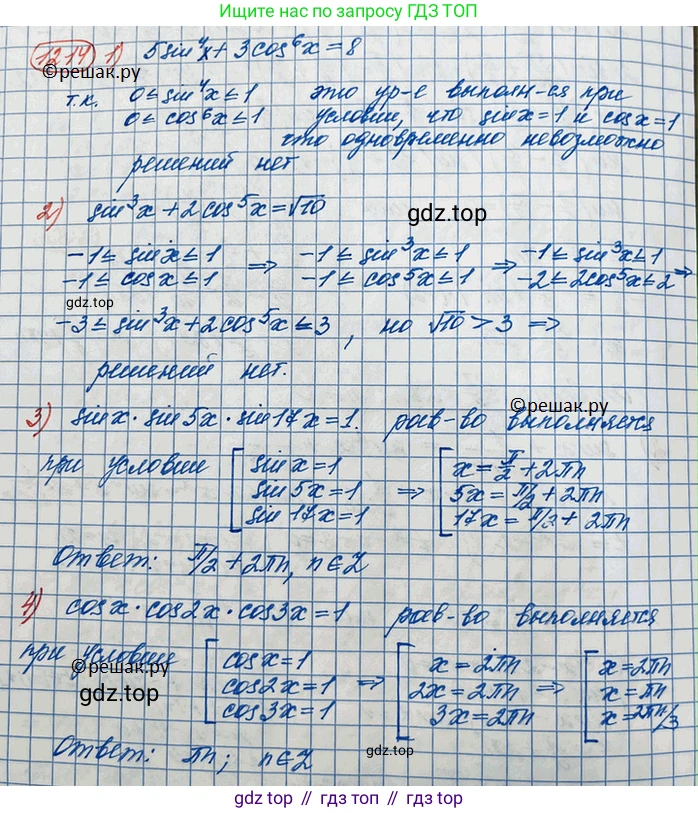 Подпишись на нас по запросу ГДЗ ТОП
1214 1) 5sin⁴x + 3cos⁶x = 8
©reшак.ру
т.к. 0 ≤ sin⁴x ≤ 1 это ур-е выполн-ся при
0 ≤ cos⁶x ≤ 1 условии, что sinx = 1 и cosx = 1
что одновременно невозможно
решений нет
2) sin³x + 2cos⁵x = √10
gdz.top
-1 ≤ sinx ≤ 1 ⇒ -1 ≤ sin³x ≤ 1 ⇒ -1 ≤ sin³x ≤ 1
-1 ≤ cosx ≤ 1 -1 ≤ cos⁵x ≤ 1 -2 ≤ 2cos⁵x ≤ 2 ⇒
-3 ≤ sin³x + 2cos⁵x ≤ 3, но √10 > 3 ⇒
решений нет.
©reшак.ру
3) sinx · sin5x · sin17x = 1. рав-во выполняется
при условии [ sinx = 1 ⇒ [ x = π/2 + 2πn
sin5x = 1 5x = π/2 + 2πn
sin17x = 1 17x = π/2 + 2πn
Ответ: π/2 + 2πn, n ∈ Z
4) cosx · cos2x · cos3x = 1 рав-во выполняется
при условии [ cosx = 1 ⇒ [ x = 2πn ⇒ [ x = 2πn
©reшак.ру
cos2x = 1 2x = 2πn x = πn
gdz.top
cos3x = 1 3x = 2πn x = 2πn/3
Ответ: πn; n ∈ Z
gdz.top
gdz.top // gdz.top // gdz.top